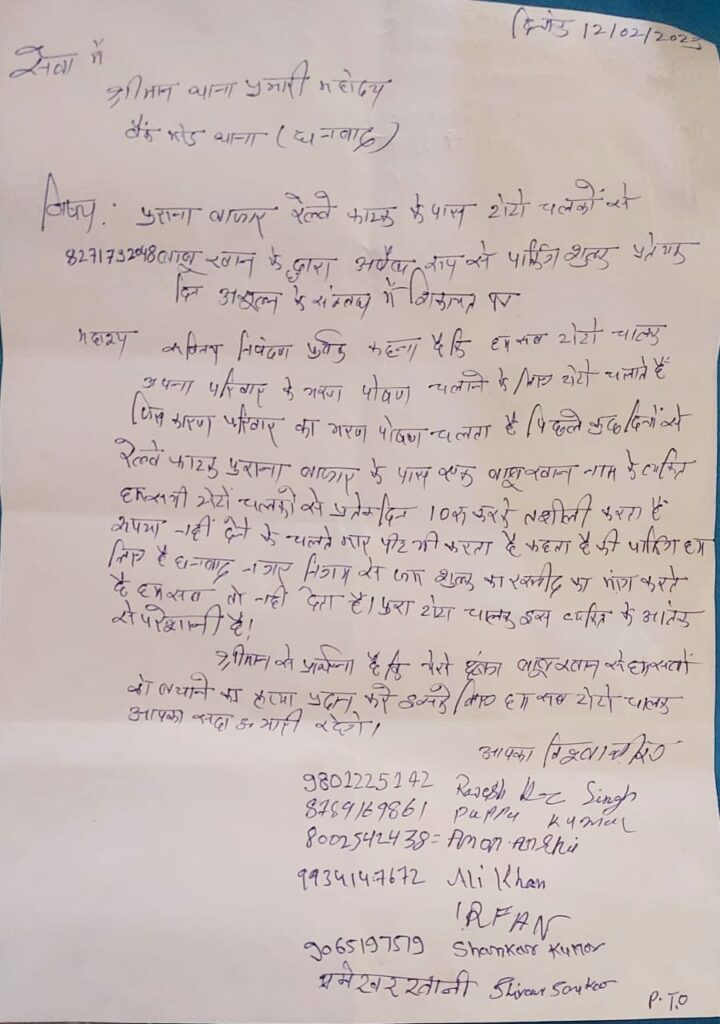 दिनांक 12/02/2023
सेवा में
श्रीमान थाना प्रभारी महोदय
बैंक मोड थाना (धनबाद)
विषय: पुराना बाजार रेल्वे फाटक के पास टोटो चलकों से
8271732048 बाबू खान के द्वारा अवैध रूप से पार्किंग शुल्क प्रतेयक
दिन असूलन के संम्बध में शिकायत पत्र
महाश्य सविनय निवेदण पुर्वक कहना है कि हम सब टोटो चालक
अपना परिवार के भरण पोषण चलाने के लिए टोटो चलाते हैं
जिस कारण परिवार का भरण पोषण चलता है पिछले कुछ दिनों से
रेल्वे फाटक पुराना बाजार के पास एक बाबू खान नाम के व्यक्ति
हम सभी टोटो चलकों से प्रतेकदिन 10रू करके वशीली करता है
रूपया नहीं देने के चलते मार पीट भी करता है कहता है की पार्किंग हम
लिए है धनबाद नगर निगम से जब शुल्क का रसीद का मांग करते
है हम सब तो नही देता है। पुरा टोटो चालक इस व्यक्ति के आतंक
से परेशानी है!
श्रीमान से प्रर्थना है कि ऐसे बाबू खान से हमसबों
को बचाने का कृपा प्रदान करें इसके लिए हम सब टोटो चालक
आपका सदा अभारी रहेगे।
आपका विश्वासी
9802225242 Rajesh Kr Singh
8789169861 Pappu Kumar
8002542438= Aman
9934147672 Ali Khan
IRFAN
9065197519 Shankar Kumar
Shivam
P.T.O